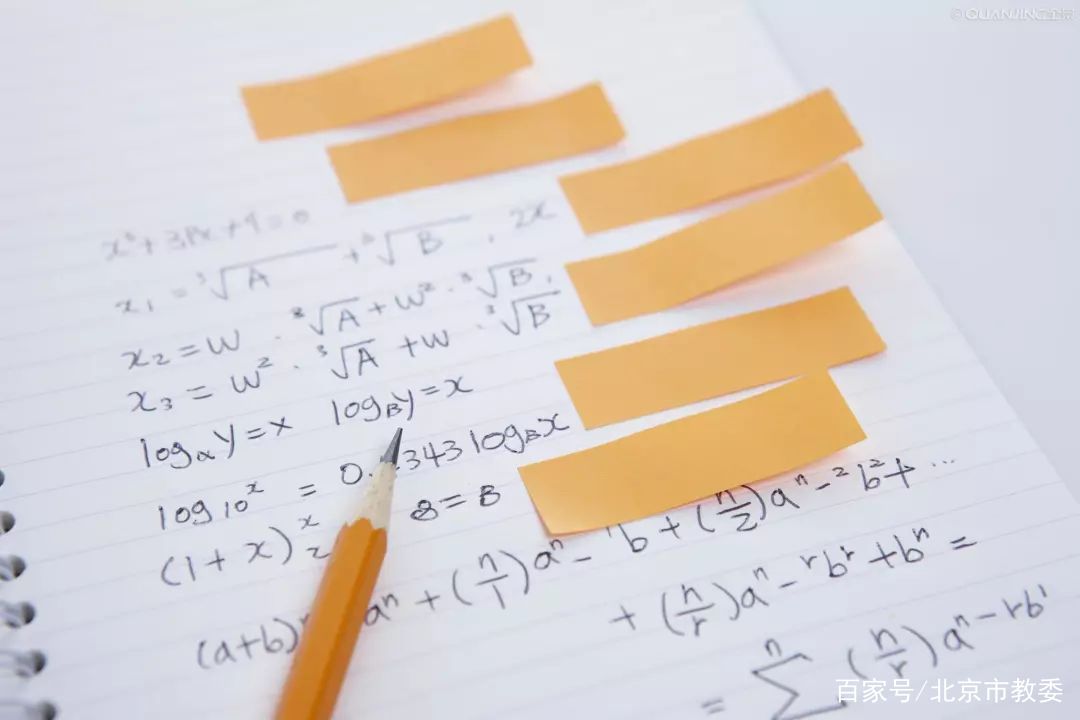 ©QUANJING全景
x³+3Px+q=0
x₁ = ³√A + ³√B , 2x
x₂ = W · ³√A + W² · ³√B ,
x₃ = W² · ³√A + W · ³√B
logₐ y = x log_B y = x
log 10ˣ = 0. 343 log_B x
(1 + x) 8 = B
(a+b) aⁿ + (n/1) aⁿ - ¹b + (n/2) aⁿ - ²b² + ...
+ (n/r) aⁿ - ʳbʳ + bⁿ =
= ⁿ∑ (n/r) aⁿ - rbʳ
百家号/北京市教委